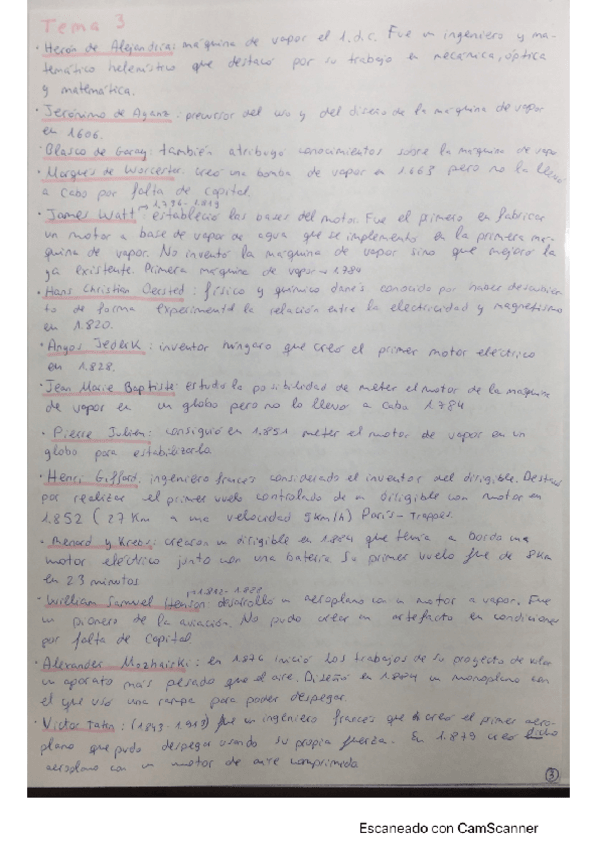 Tema 3
· Herón de Alejandria: máquina de vapor el 1.d.c. Fue un ingeniero y ma-
temático helenístico que destacó por su trabajo en mecánica, óptica
y matemática.
· Jerónimo de Ayanz: precursor del uso y del diseño de la máquina de vapor
en 1606.
· Blasco de Garay: también atribuyó conocimientos sobre la máquina de vapor
· Marques de Worcester: creó una bomba de vapor en 1.663 pero no la llevó
a cabo por falta de capital.
· James Watt: estableció las bases del motor. Fue el primero en fabricar
un motor a base de vapor de agua que se implementó en la primera má-
quina de vapor. No inventó la máquina de vapor sino que mejoró la
ya existente. Primera máquina de vapor → 1784
· Hans Christian Oersted: físico y químico danés conocido por haber descubier-
to de forma experimental la relación entre la electricidad y magnetismo
en 1.820.
· Jedlik: inventor húngaro que creó el primer motor eléctrico
en 1.828.
· Jean Marie Baptiste: estudio la posibilidad de meter el motor de la máquina
de vapor en un globo pero no lo llevó a cabo 1.784
· Pierre Julien: consiguió en 1.851 meter el motor de vapor en un
globo para estabilizarlo.
· Henri Giffard: ingeniero francés considerado el inventor del dirigible. Destaca
por realizar el primer vuelo controlado de un dirigible con motor en
1.852 (27 Km a una velocidad 9km/h) Paris - Trappes.
· Renard y Krebs: crearon un dirigible en 1.884 que tenía a bordo una
motor eléctrico junto con una batería. Su primer vuelo fue de 8Km
en 23 minutos
· William Samuel Henson: desarrolló un aeroplano con un motor a vapor. Fue
un pionero de la aviación. No pudo crear un artefacto en condiciones
por falta de capital.
· Alexander Mozhaiski: en 1876 inició los trabajos de su proyecto de volar
un aparato más pesado que el aire. Diseñó en 1.884 un monoplano con
el que usó una rampa para poder despegar.
· Victor Tatin: fue un ingeniero francés que creó el primer aero-
plano que pudo despegar usando su propia fuerza. En 1.879 creó dicho
aeroplano con un motor de aire comprimido.
3
Escaneado con CamScanner